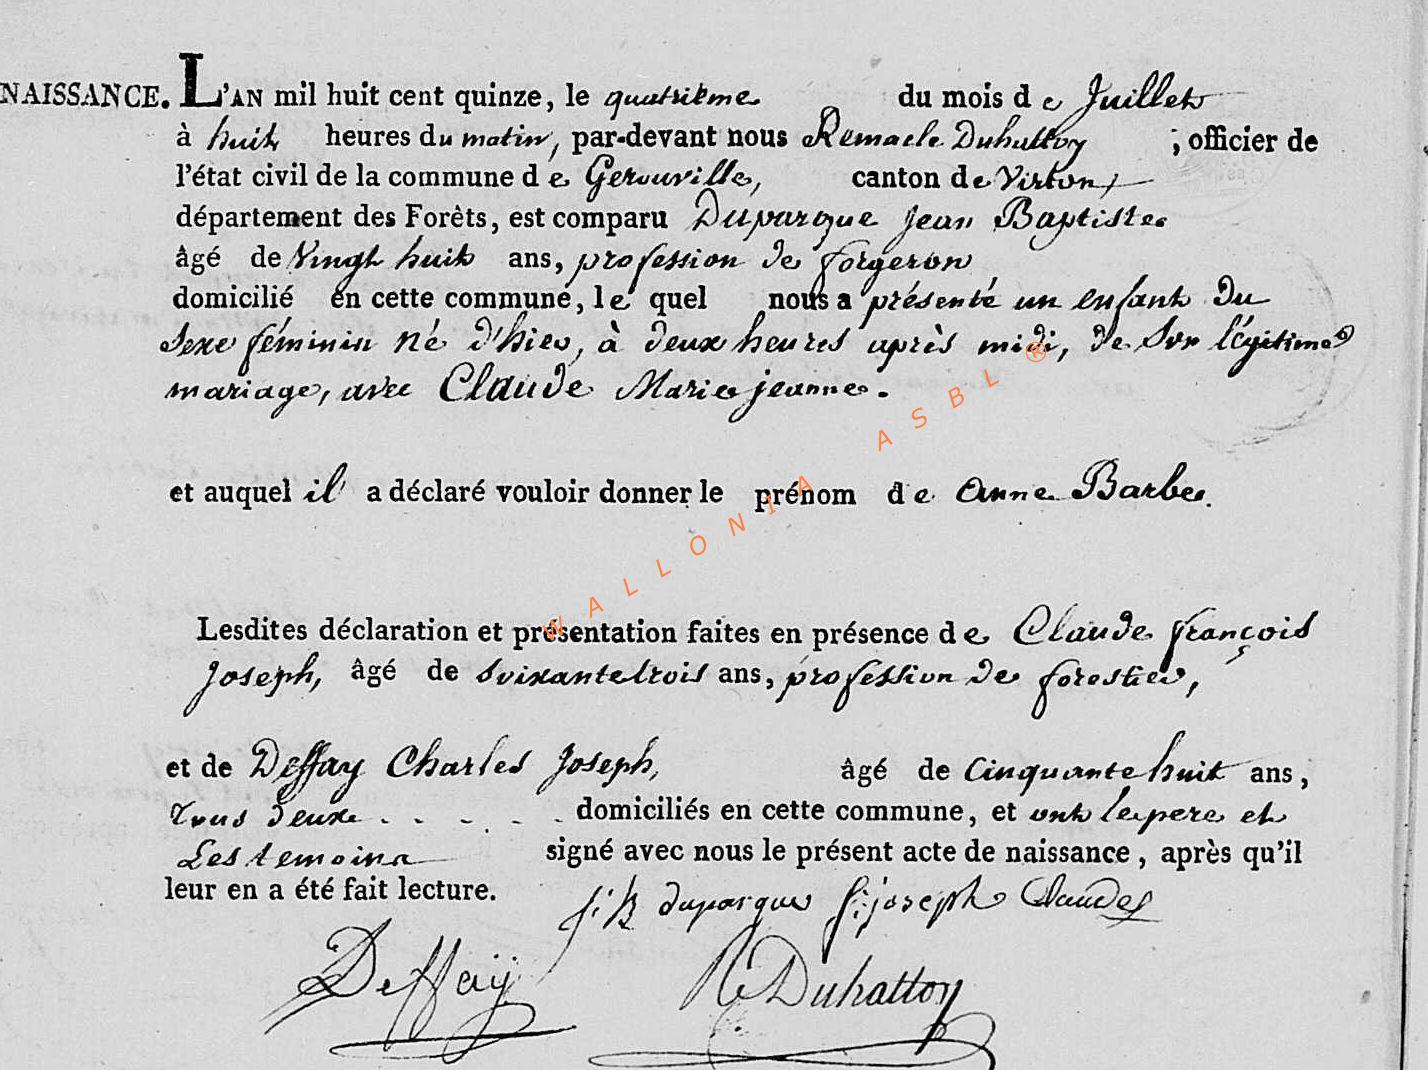 NAISSANCE. L'AN mil huit cent quinze, le quatrième du mois de Juillet
à huit heures du matin, par-devant nous Remacle Duhattoy ; officier de
l'état civil de la commune de Gerouville, canton de Virton,
département des Forêts, est comparu Duparque Jean Baptiste
âgé de Vingt huit ans, profession de forgeron
domicilié en cette commune, le quel nous a présenté un enfant du
Sexe féminin né d'hier, à deux heures après midi, de son légitime
mariage, avec Claude Marie jeanne.
et auquel il a déclaré vouloir donner le prénom de Anne Barbe.
Lesdites déclaration et présentation faites en présence de Claude françois
Joseph, âgé de soixante trois ans, profession de forestier,
et de Deffay Charles Joseph, âgé de Cinquante huit ans,
Tous deux . . . . . domiciliés en cette commune, et ont le pere et
Les temoins signé avec nous le présent acte de naissance, après qu'il
leur en a été fait lecture.
duparque f: joseph Claude
Deffaÿ R Duhattoy
WALLONIA ASBL ®